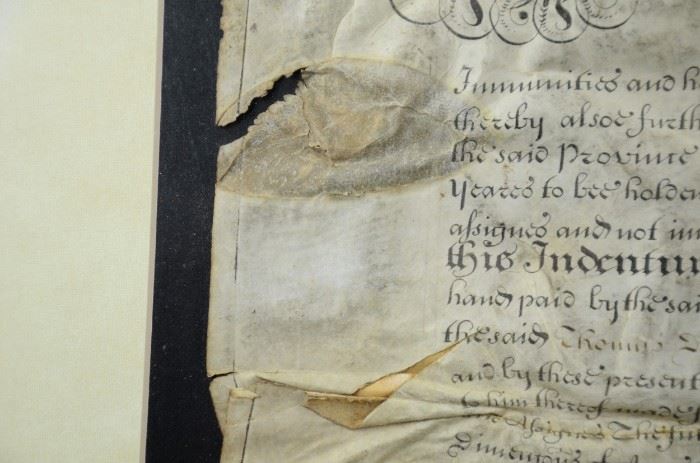 Immunities and h
thereby alsoe furth
the said Province
yeares to bee holden
assignes and not im
this Indentu
hand paid by the sai
the said Thomas
and by these present
thereof made
Assignes The fu